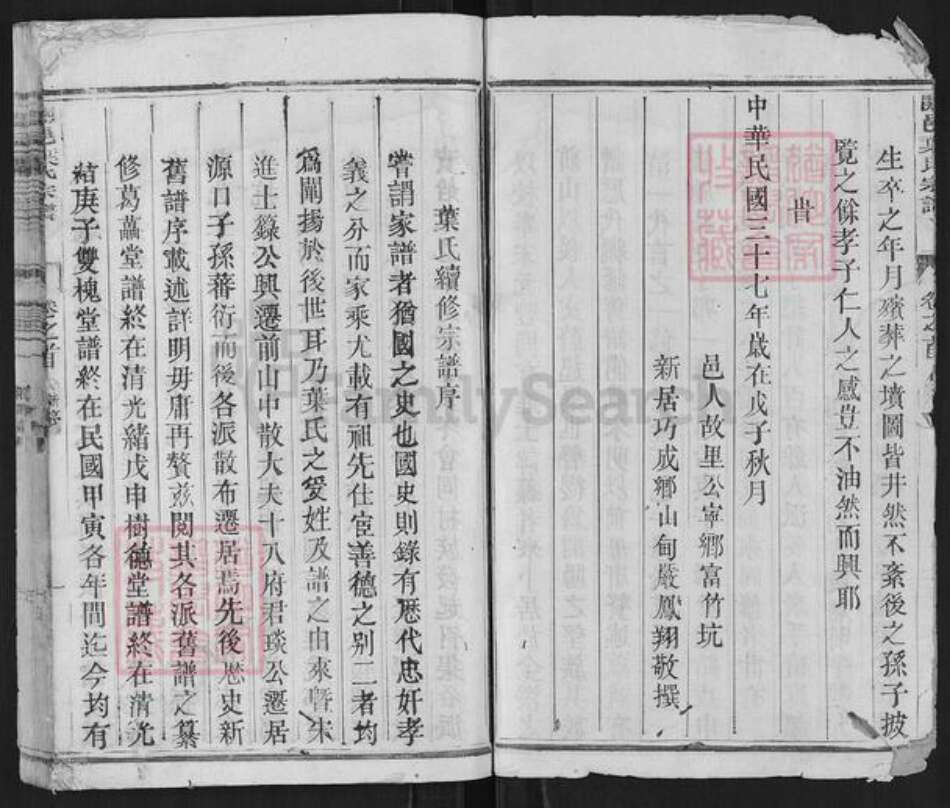 生卒之年月殯葬之墳圖皆井然不紊後之孫子披
覽之餘孝子仁人之感豈不油然而興耶
旹
中華民國三十七年歲在戊子秋月
邑人故里公寧鄉富竹坑
新居巧成鄉山甸嚴鳳翔敬撰
葉氏續修宗譜序
嘗謂家譜者猶國之史也國史則錄有歷代忠奸孝
義之分而家乘尤載有祖先仕宦善德之別二者均
爲闡揚於後世耳乃葉氏之受姓及譜之由來曁宋
進士籙公興遷前山中散大夫十八府君琰公遷居
源口子孫蕃衍而後各派散布遷居焉先後歷史新
舊譜序載述詳明毋庸再贅茲閱其各派舊譜之纂
修葛藟堂譜終在清光緒戊申樹德堂譜終在清光
緒庚子雙槐堂譜終在民國甲寅各年間迄今均有
邑葉氏宗譜
卷之首
FamilySearch